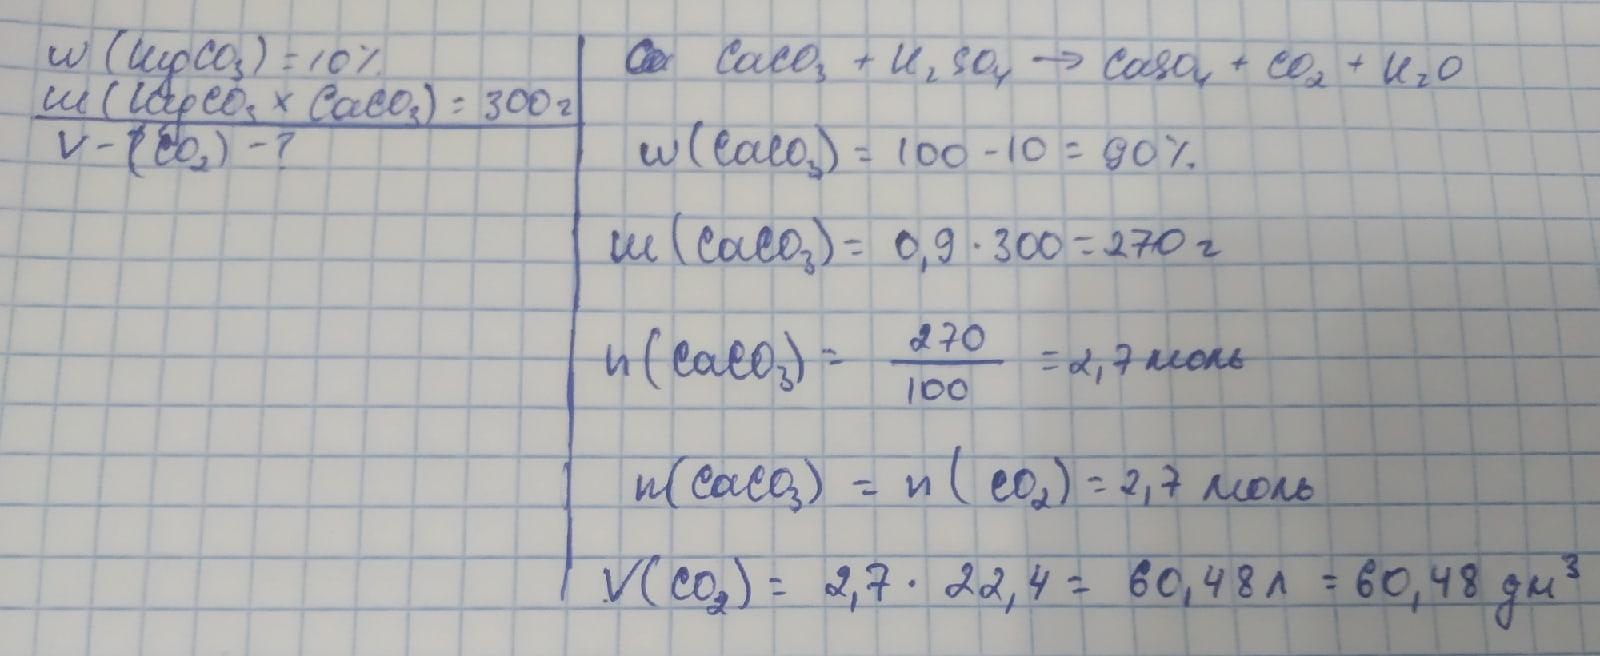 w (MgCO₃) = 10%
m (MgCO₃ × CaCO₃) = 300 г
V - (CO₂) - ?
CaCO₃ + H₂SO₄ → CaSO₄ + CO₂ + H₂O
w (CaCO₃) = 100 - 10 = 90%
m (CaCO₃) = 0,9 · 300 = 270 г
n (CaCO₃) = 270/100 = 2,7 моль
n (CaCO₃) = n (CO₂) = 2,7 моль
V (CO₂) = 2,7 · 22,4 = 60,48 л = 60,48 дм³